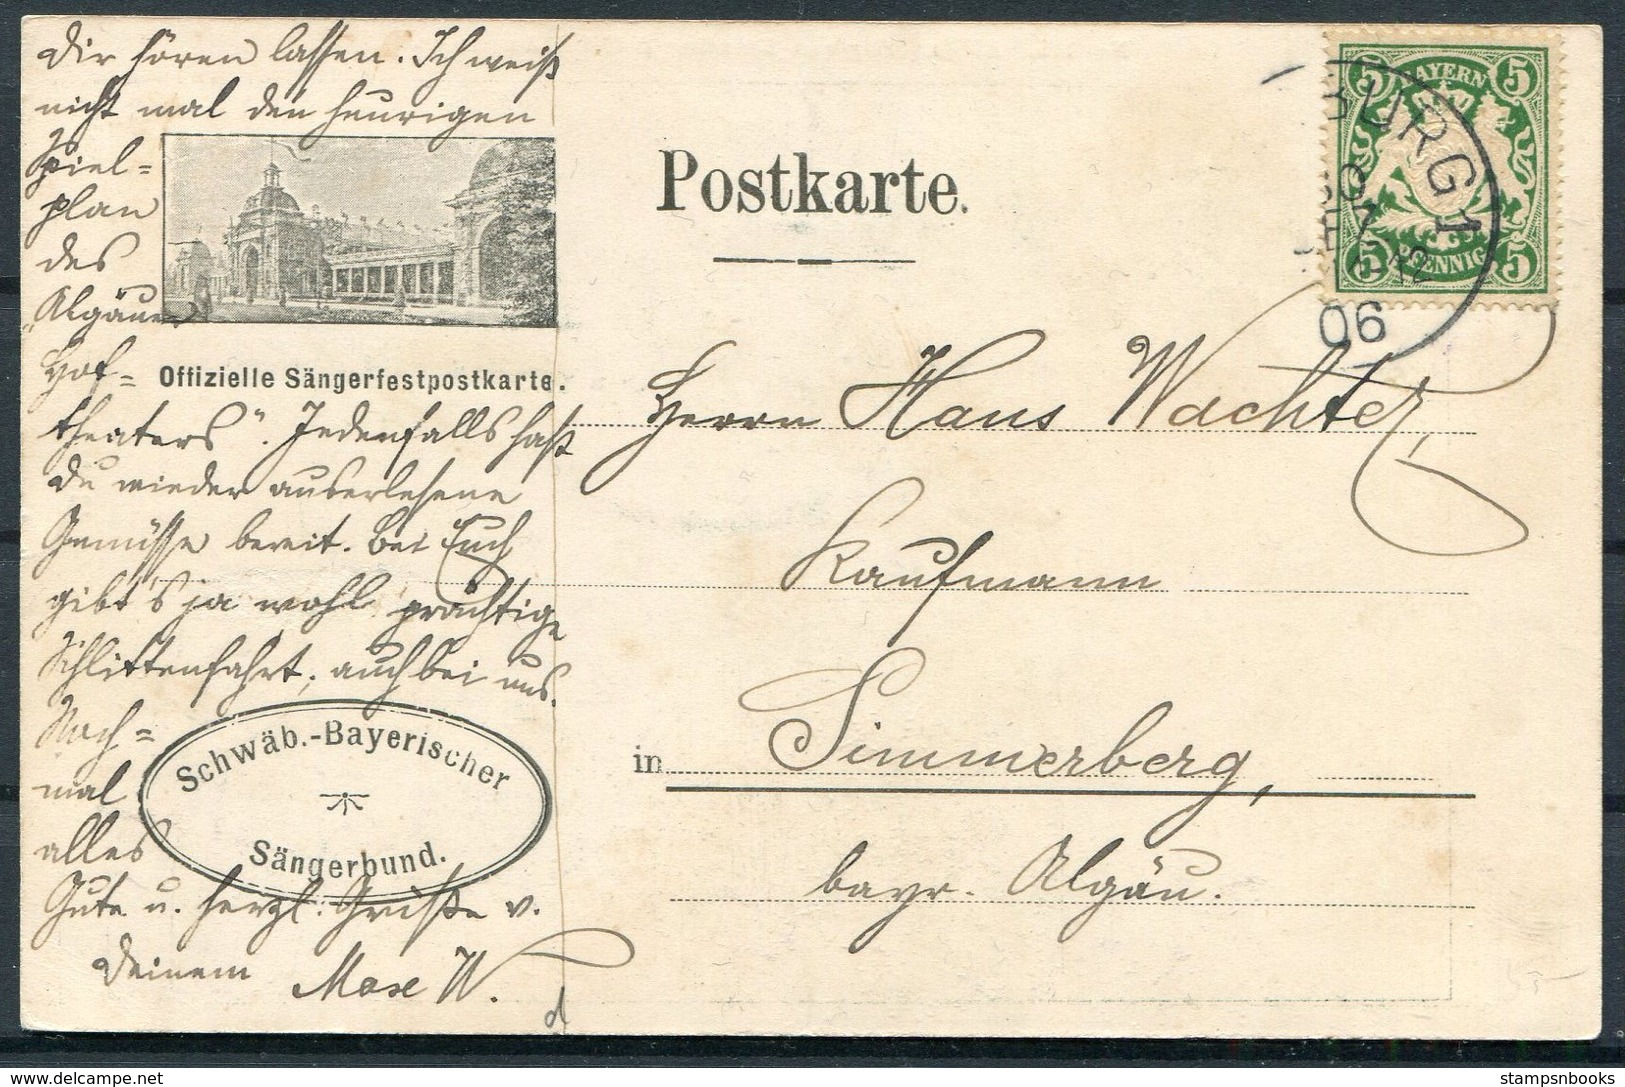 Dir hören lassen. Ich weiß
nicht mal den heurigen
Spiel=
plan
des
„Algäuer
Hof=
theaters“. Jedenfalls hast
Du wieder auserlesene
Genüsse bereit. Bei Euch
gibt's ja wohl prächtige
Schlittenfahrt; auch bei uns.
Noch=
mal
alles
Gute u. herzl. Grüße v.
Deinem Max W.
Offizielle Sängerfestpostkarte.
Schwäb.-Bayerischer
Sängerbund.
Postkarte.
BAYERN
5 5
5 5
PFENNIG
BURG 1
06
Herrn Hans Wachter,
Kaufmann
in Simmerberg,
bayr. Algäu.
d
delcampe.net
stampsnbooks